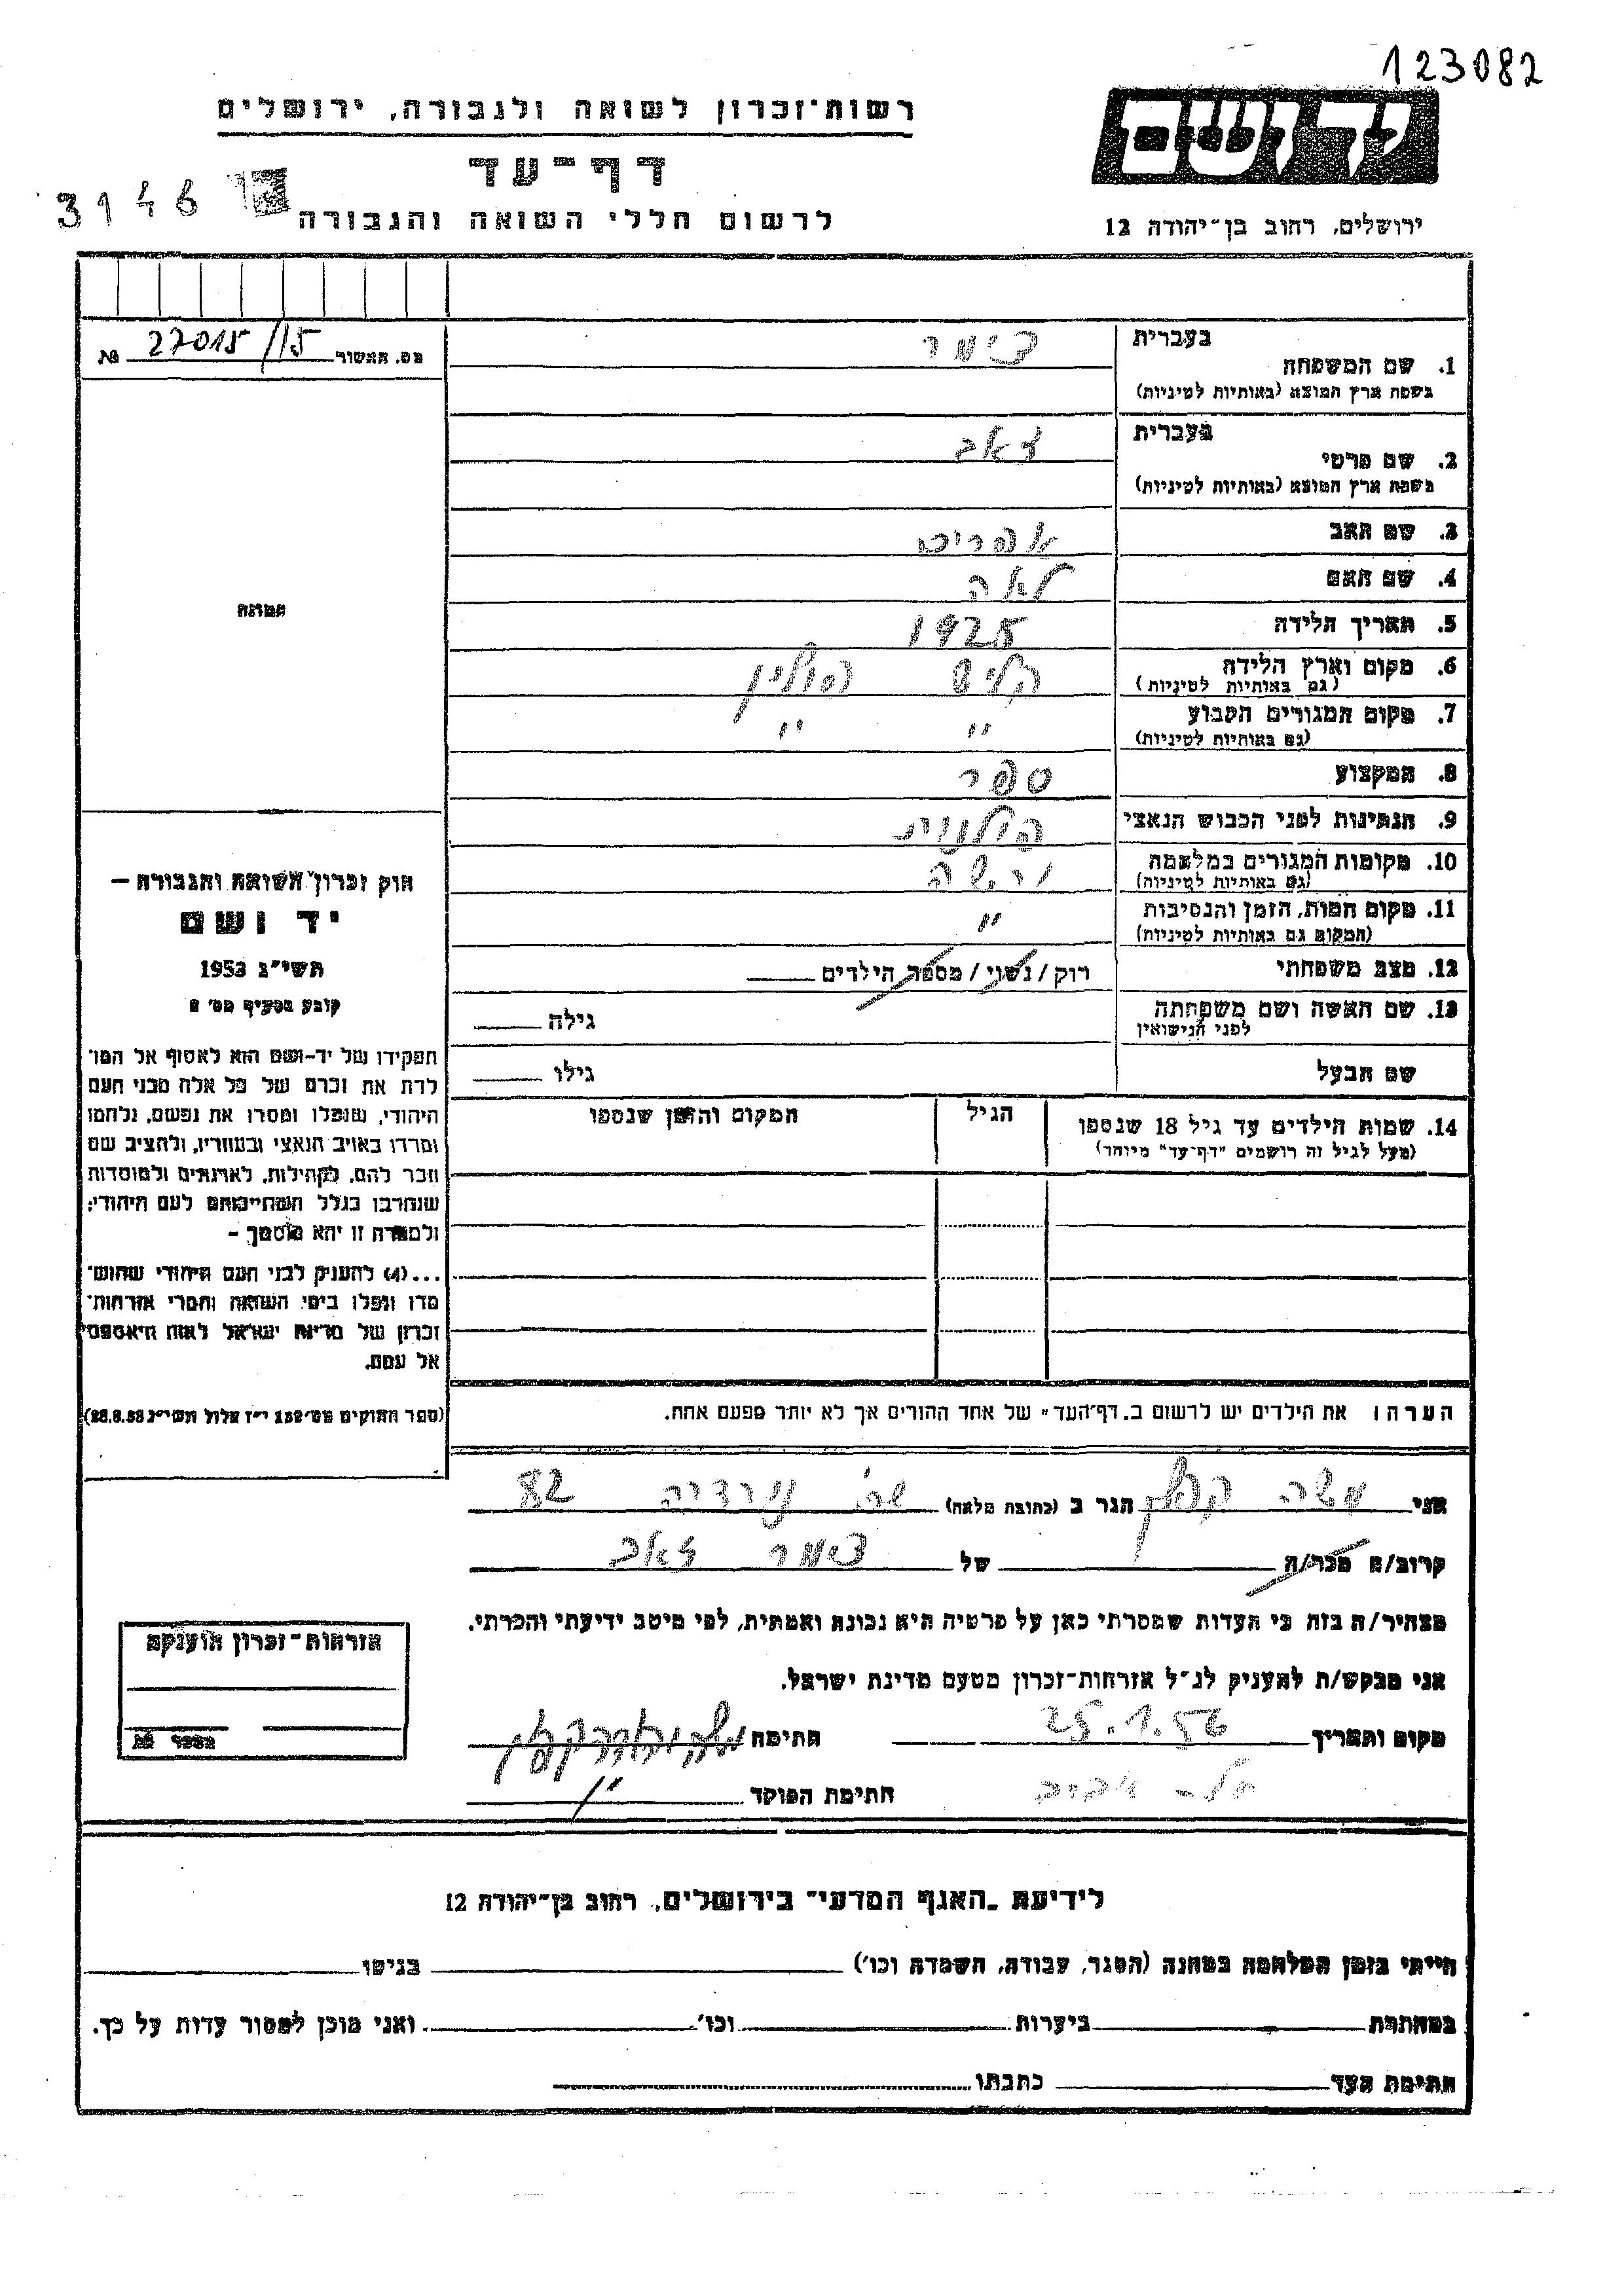 123082
רשות־זכרון לשואה ולגבורה, ירושלים
יד ושם
דף־עד
3146
לרשום חללי השואה והגבורה
ירושלים, רחוב בן־יהודה 12
מס. האשור 27015/15 №
1. שם המשפחה
בעברית צימר
בשפת ארץ המוצא (באותיות לטיניות)
2. שם פרטי
בעברית זאב
בשפת ארץ המוצא (באותיות לטיניות)
3. שם האב אפרים
4. שם האם לאה
5. תאריך הלידה 1925
6. מקום וארץ הלידה פולין
(גם באותיות לטיניות)
7. מקום המגורים הקבוע " "
(גם באותיות לטיניות)
8. המקצוע ספר
9. הנתינות לפני הכבוש הנאצי פולנית
10. מקומות המגורים במלחמה ורשה
(גם באותיות לטיניות)
11. מקום המות, הזמן והנסיבות "
(המקום גם באותיות לטיניות)
12. מצב משפחתי רוק/נשוי/מספר הילדים
13. שם האשה ושם משפחתה גילה
לפני הנישואין
שם הבעל גילו
14. שמות הילדים עד גיל 18 שנספו הגיל המקום והזמן שנספו
(מעל לגיל זה רושמים "דף־עד" מיוחד)
הערה: את הילדים יש לרשום ב„דף־העד" של אחד ההורים אך לא יותר מפעם אחת.
תמונה
חוק זכרון השואה והגבורה –
יד ושם
תשי"ג 1953
קובע בסעיף מס' 2
תפקידו של יד-ושם הוא לאסוף אל המו־
לדת את זכרם של כל אלה מבני העם
היהודי, שנפלו ומסרו את נפשם, נלחמו
ומרדו באויב הנאצי ובעוזריו, ולהציב שם
וזכר להם, לקהילות, לארגונים ולמוסדות
שנחרבו בגלל השתייכותם לעם היהודי;
ולמטרה זו יהא מוסמך –
...(4) להעניק לבני העם היהודי שהוש־
מדו ונפלו בימי השואה והמרי אזרחות־
זכרון של מדינת ישראל לאות היאספם
אל עמם.
(ספר החוקים מס' 132 י"ז אלול תשי"ג 28.8.53)
אני משה קפלן הגר ב (כתובת מלאה) 82
קרוב/ה מכר/ה של צימר זאב
מצהיר/ה בזה כי העדות שמסרתי כאן על פרטיה היא נכונה ואמתית, לפי מיטב ידיעתי והכרתי.
אני מבקש/ת להעניק לנ"ל אזרחות־זכרון מטעם מדינת ישראל.
מקום ותאריך 25.1.56 חתימה
תל-אביב
חתימת הפוקד "
אזרחות־זכרון הוענקה
מספר №
לידיעת „האגף המדעי" בירושלים, רחוב בן־יהודה 12
הייתי בזמן המלחמה במחנה (הסגר, עבודה, השמדה וכו') בגיטו
במחתרת ביערות וכו' ואני מוכן למסור עדות על כך.
חתימת העד כתבתו